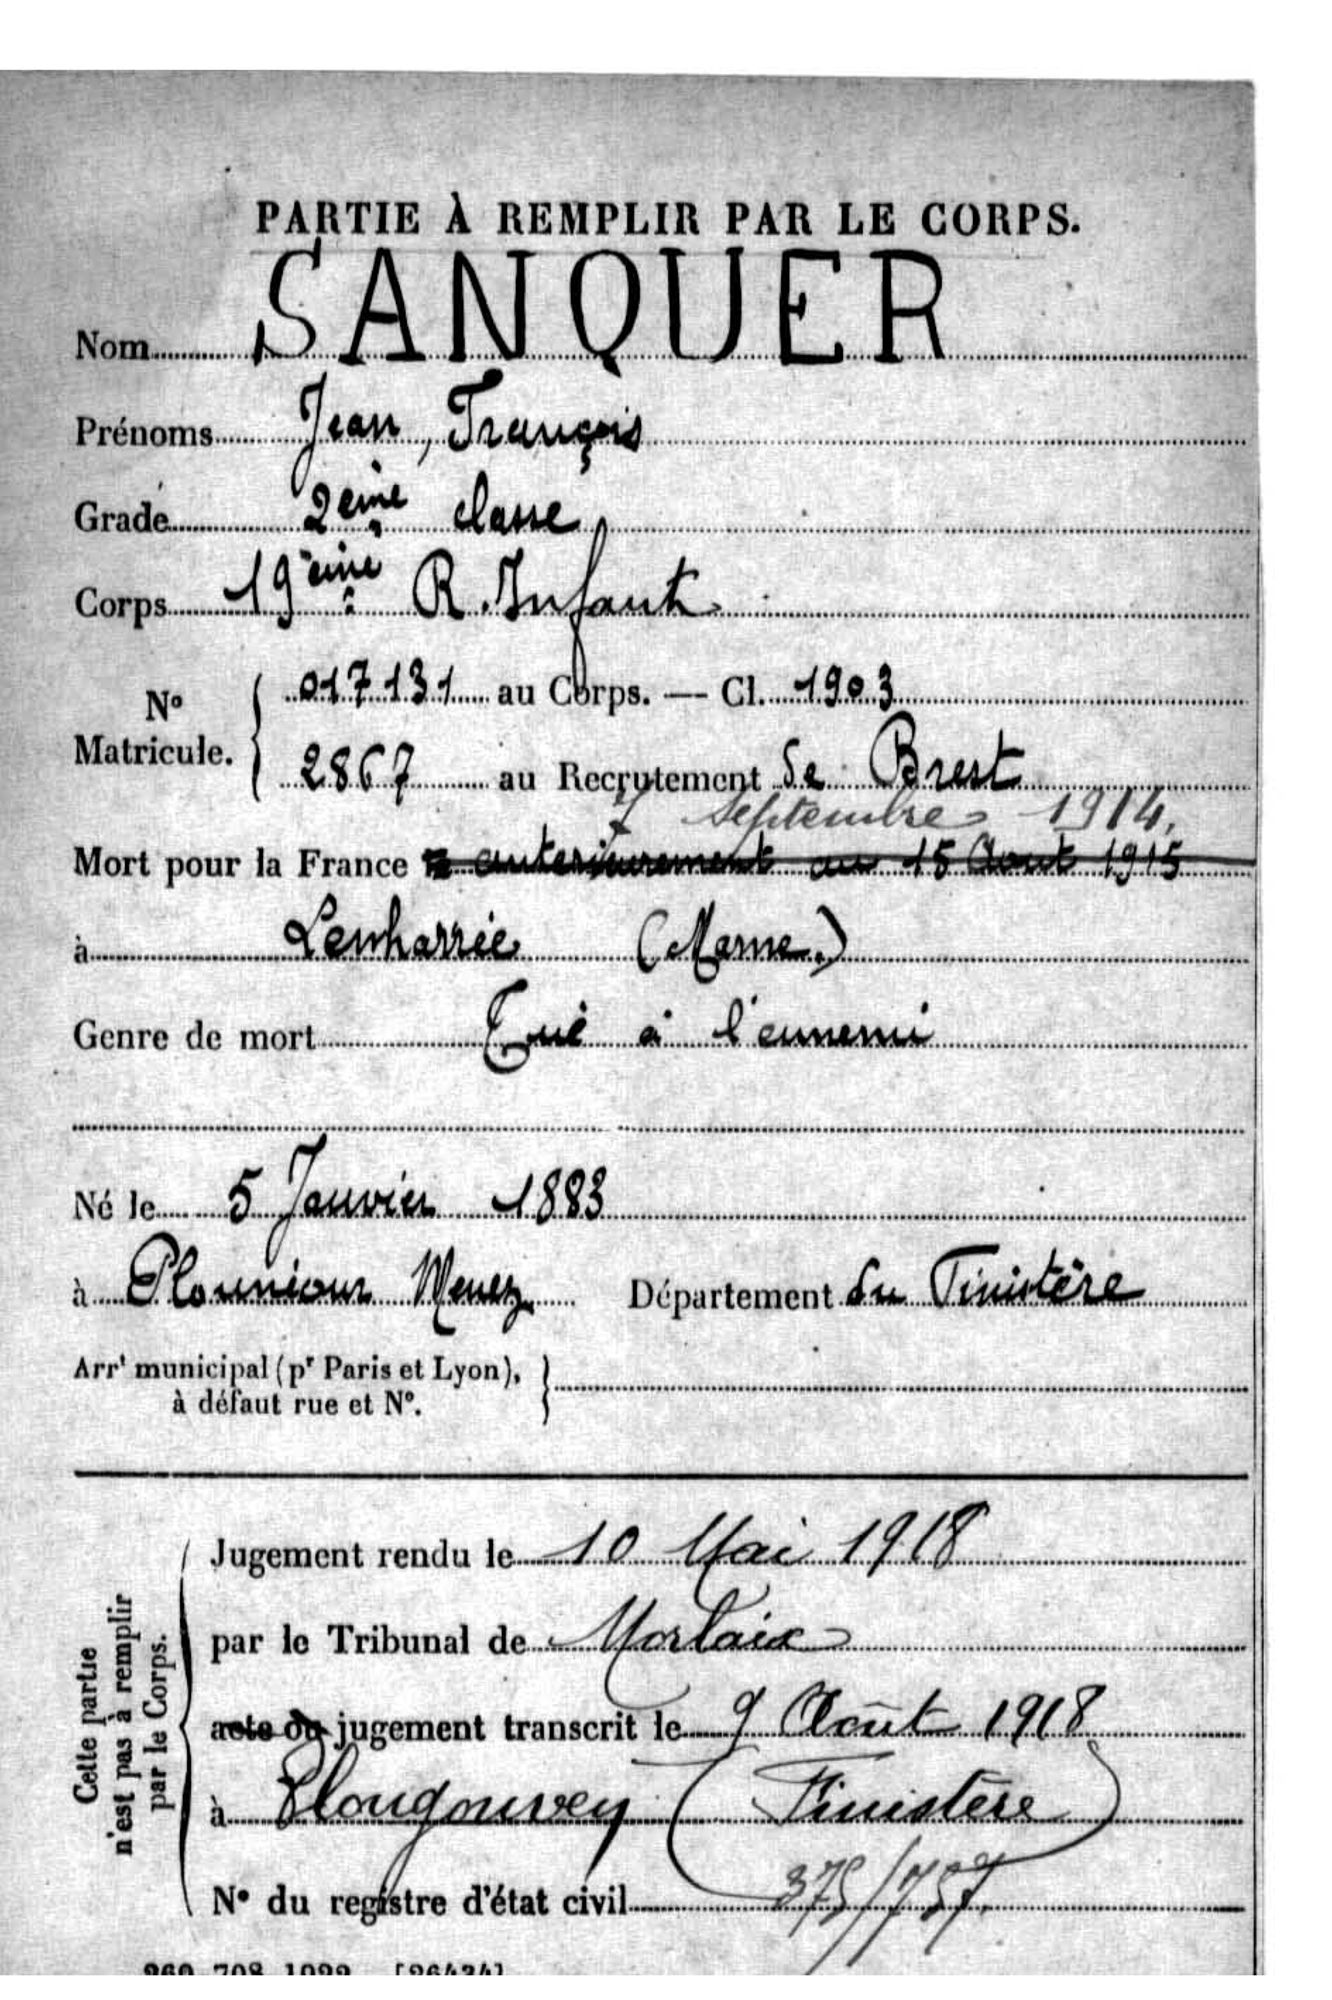 PARTIE À REMPLIR PAR LE CORPS.
Nom SANQUER
Prénoms Jean, François
Grade 2eme classe
Corps 19eme R. Infant
Nº Matricule. 017131 au Corps. — Cl. 1903
2867 au Recrutement de Brest
7 Septembre 1914.
Mort pour la France anterieurement au 15 Aout 1915
à Lenharrée (Marne.)
Genre de mort Tué à l'ennemi
Né le 5 Janvier 1883
à Plouniour Menez Département du Finistère
Arrt municipal (pr Paris et Lyon),
à défaut rue et Nº.
Cette partie
n'est pas à remplir
par le Corps.
Jugement rendu le 10 Mai 1918
par le Tribunal de Morlaix
acte ou jugement transcrit le 9 Août 1918
à Plougonvey (Finistère)
Nº du registre d'état civil 375/757
260 708 1922 [26434]